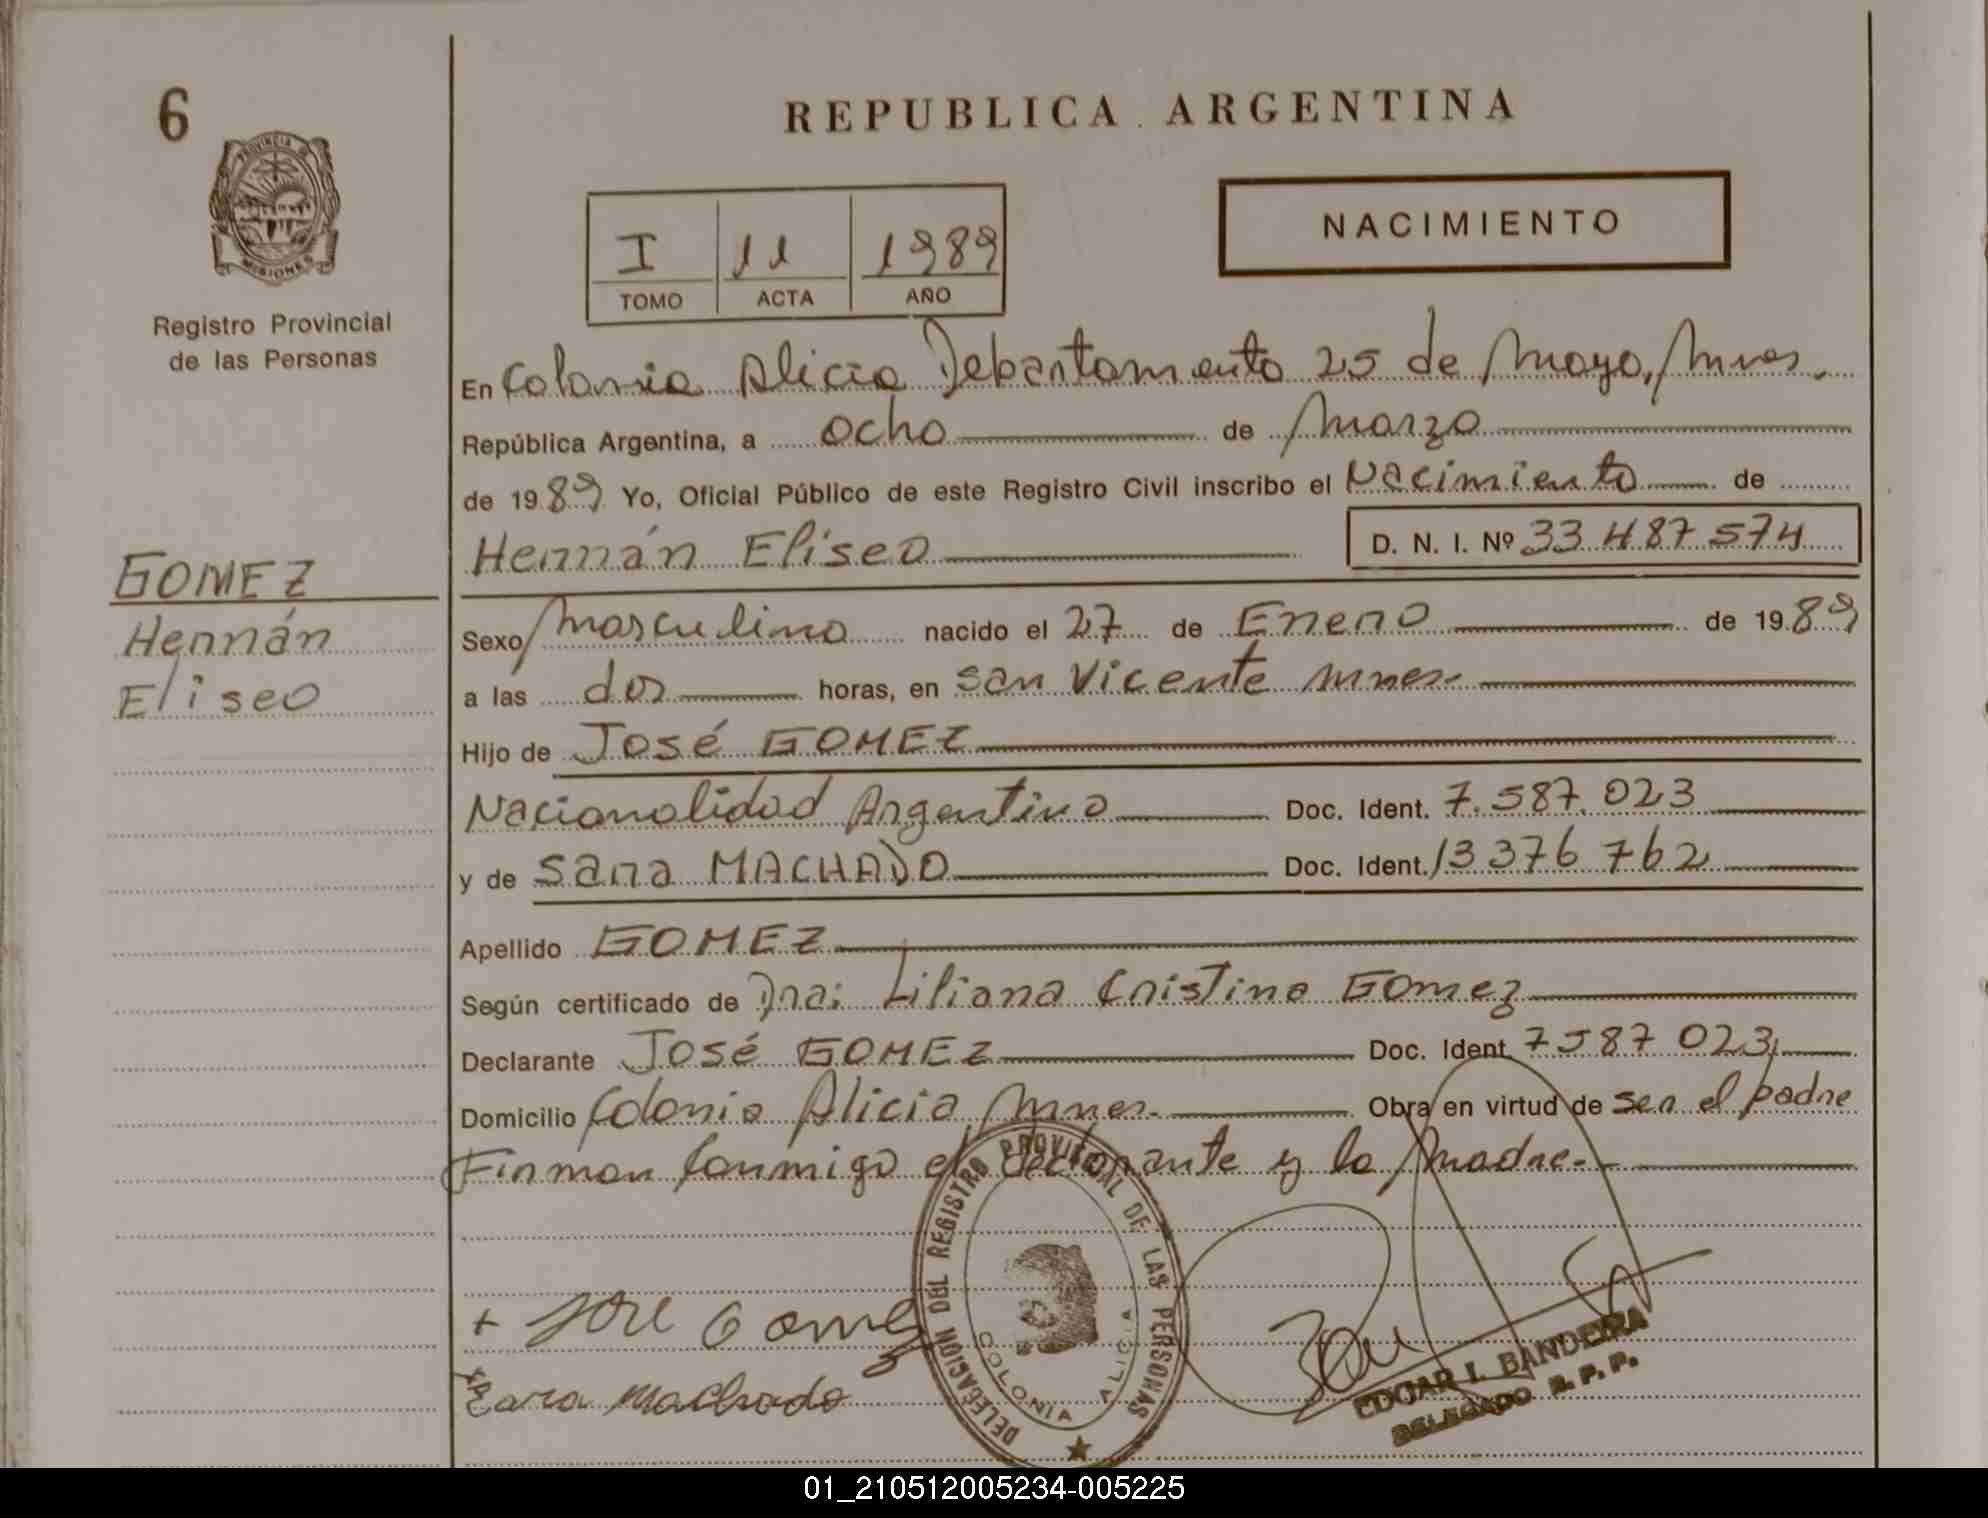 6
REPUBLICA ARGENTINA
PROVINCIA DE
MISIONES
NACIMIENTO
I 11 1989
TOMO ACTA AÑO
Registro Provincial
de las Personas
En Colonia Alicia Departamento 25 de Mayo, Mnes.
República Argentina, a ocho de Marzo
de 1989 Yo, Oficial Público de este Registro Civil inscribo el Nacimiento de
Hernán Eliseo D. N. I. Nº 33 487 574
GOMEZ
Hernán
Eliseo
Sexo Masculino nacido el 27 de Enero de 1989
a las dos horas, en San Vicente Mnes.
Hijo de José GOMEZ
Nacionalidad Argentino Doc. Ident. 7.587.023
y de Sara MACHADO Doc. Ident. 13376 762
Apellido GOMEZ
Según certificado de Dra: Liliana Cristina Gomez
Declarante José GOMEZ Doc. Ident. 7587 023
Domicilio Colonia Alicia Mnes. Obra en virtud de ser el padre
Firman Conmigo el declarante y la Madre.
+ José Gomez
Sara Machado
DELEGACION DEL REGISTRO PROVINCIAL DE LAS PERSONAS
COLONIA ALICIA
EDGAR I. BANDEIRA
DELEGADO R. P. P.
01_210512005234-005225